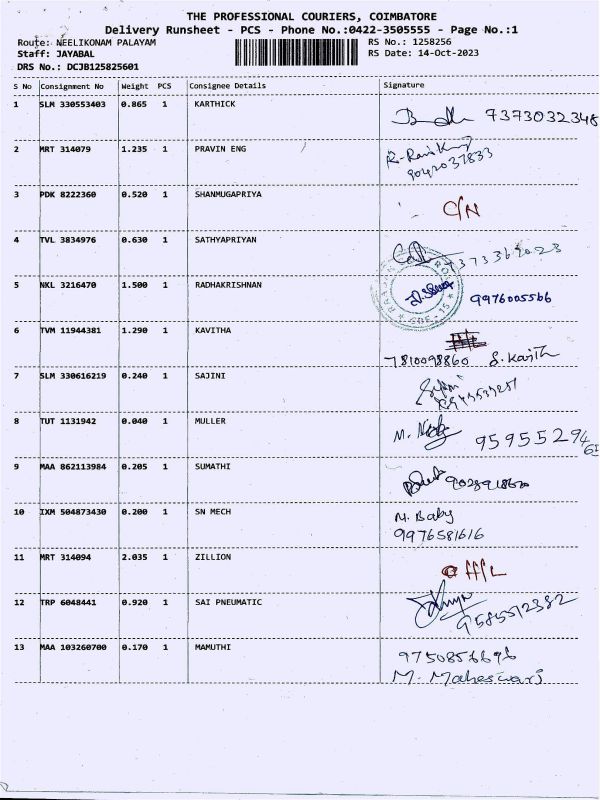 THE PROFESSIONAL COURIERS, COIMBATORE
Delivery Runsheet - PCS - Phone No.:0422-3505555 - Page No.:1
Route: NEELIKONAM PALAYAM RS No.: 1258256
Staff: JAYABAL RS Date: 14-Oct-2023
DRS No.: DCJB125825601
S No Consignment No Weight PCS Consignee Details Signature
1 SLM 330553403 0.865 1 KARTHICK 7373032348
2 MRT 314079 1.235 1 PRAVIN ENG
9042037833
3 PDK 8222360 0.520 1 SHANMUGAPRIYA C/N
4 TVL 3834976 0.630 1 SATHYAPRIYAN
5 NKL 3216470 1.500 1 RADHAKRISHNAN 9976005566
6 TVM 11944381 1.290 1 KAVITHA
7810098860
7 SLM 330616219 0.240 1 SAJINI
8 TUT 1131942 0.040 1 MULLER
9595529465
9 MAA 862113984 0.205 1 SUMATHI
10 IXM 504873430 0.200 1 SN MECH M. Baby
9976581616
11 MRT 314094 2.035 1 ZILLION
12 TRP 6048441 0.920 1 SAI PNEUMATIC
9585512382
13 MAA 103260700 0.170 1 MAMUTHI 9750856696
M. Maheswari